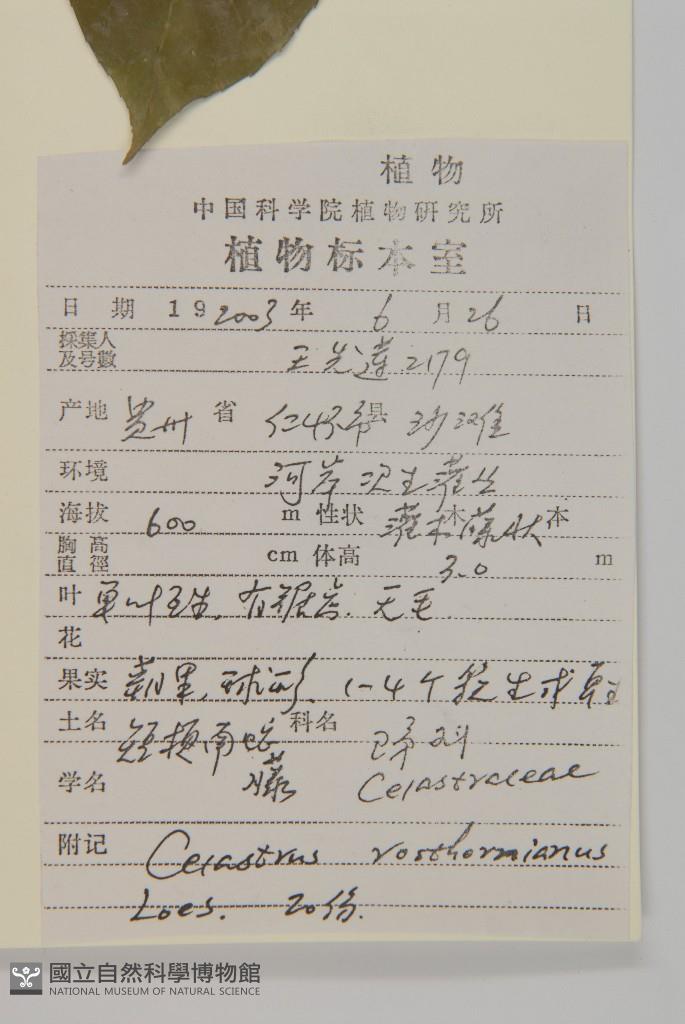 植物
中国科学院植物研究所
植物标本室
日期 19 2003 年 6 月 26 日
採集人及号數 王先蓮 2179
产地 贵州 省 仁怀市 县
环境 河岸次生灌丛
海拔 600 m 性状 灌木 藤状 本
胸高直徑 cm 体高 3.0 m
叶 单叶互生. 有锯齿. 无毛
花
果实 蒴果, 球形, 1-4个
土名 短梗南蛇藤 科名 卫矛科
学名 Celastraceae
附记 Celastrus rosthornianus
Loes. 20份.
國立自然科學博物館
NATIONAL MUSEUM OF NATURAL SCIENCE